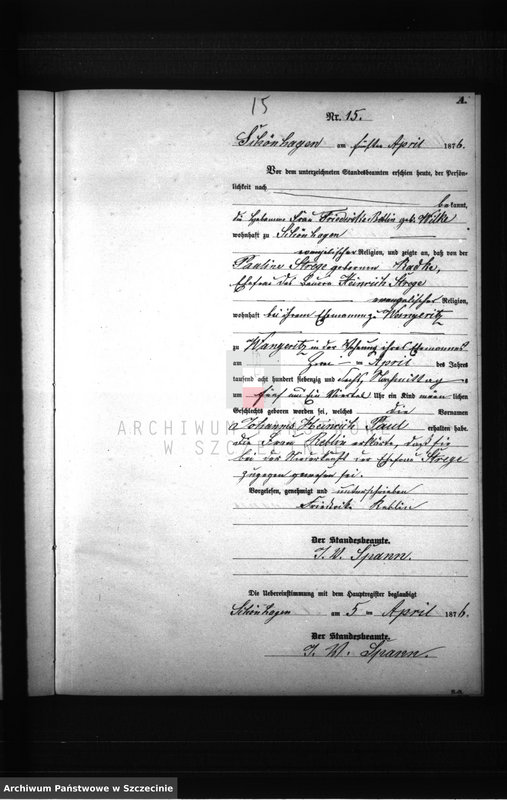 15
A.
Nr. 15.
Schönhagen am fünften April 1876.
Vor dem unterzeichneten Standesbeamten erschien heute, der Persön-
lichkeit nach
bekannt,
die Hebamme Frau Friederike Reblin geb. Wilke
wohnhaft zu Schönhagen
evangelischer Religion, und zeigte an, daß von der
Pauline Strege geborenen Radke,
Ehefrau des Bauern Heinrich Strege
evangelischer Religion,
wohnhaft bei ihrem Ehemanne zu Wangeritz
zu Wangeritz in der Wohnung ihres Ehemannes
am April des Jahres
tausend acht hundert siebenzig und sechs, Nachmittags
um fünf und ein Viertel Uhr ein Kind männlichen
Geschlechts geboren worden sei, welches die Vornamen
Johannes Heinrich Paul erhalten habe.
die Frau Reblin erklärte, daß sie
bei der Niederkunft der Ehefrau Strege
zugegen gewesen sei.
Vorgelesen, genehmigt und unterschrieben
Friederike Reblin
Der Standesbeamte.
I. V. Spann.
Die Uebereinstimmung mit dem Hauptregister beglaubigt
Schönhagen am 5 ten April 1876.
Der Standesbeamte.
I. V. Spann.
ARCHIWUM
W SZCZ
Archiwum Państwowe w Szczecinie